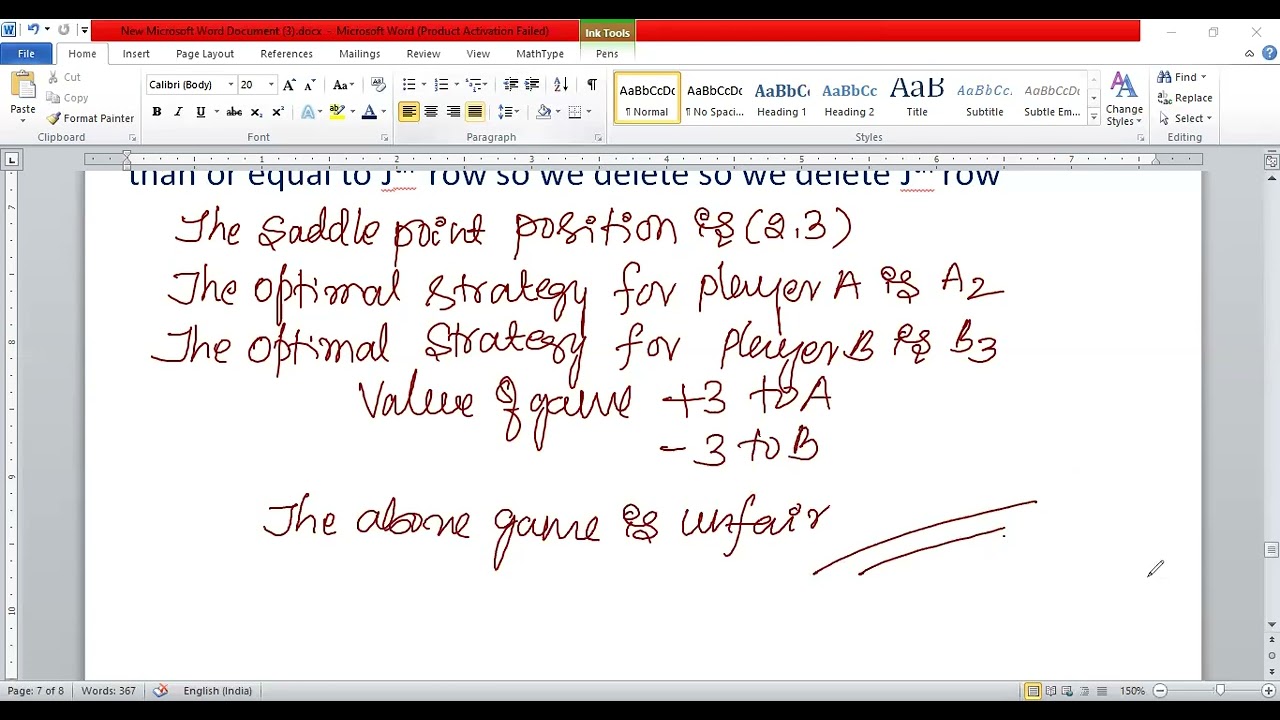 New Microsoft Word Document (3).docx - Microsoft Word (Product Activation Failed)
Ink Tools
File Home Insert Page Layout References Mailings Review View MathType Pens
Paste
Cut
Copy
Format Painter
Clipboard
Calibri (Body) 20
B I U abc x₂ x²
Font
Paragraph
AaBbCcDc ¶ Normal
AaBbCcDc ¶ No Spaci...
AaBbCc Heading 1
AaBbCc Heading 2
AaB Title
AaBbCc. Subtitle
AaBbCcDc Subtle Em...
Styles
Change Styles
Find
Replace
Select
Editing
1 2 3 4 5 6 7
than or equal to Jᵗʰ row so we delete so we delete Jᵗʰ row
The Saddle point position is (2,3)
The optimal strategy for player A is A2
The optimal strategy for player B is B3
Value of game +3 to A
-3 to B
The above game is unfair
7
8
9
10
Page: 7 of 8 Words: 367 English (India) 150%